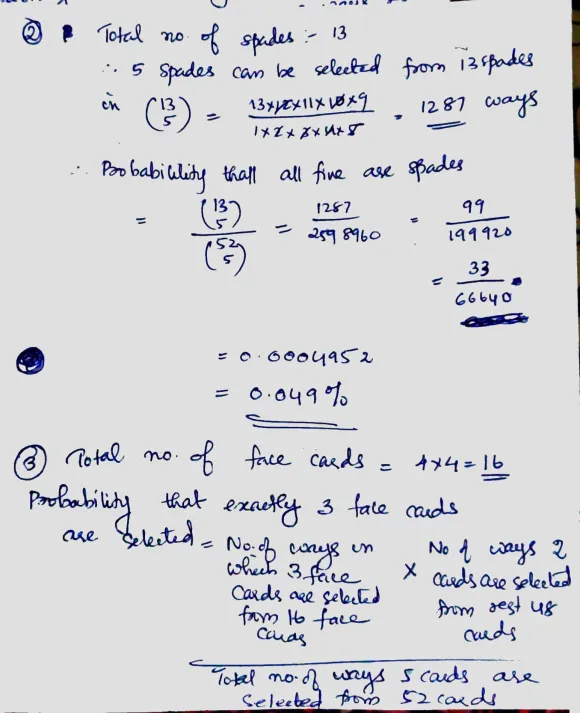 ② Total no. of spades :- 13
∴ 5 spades can be selected from 13 spades
in (13 5) = 13×12×11×10×9 / 1×2×3×4×5 = 1287 ways
∴ Probability that all five are spades
= (13 5) / (52 5) = 1287 / 2598960 = 99 / 199920
= 33 / 66640
= 0.0004952
= 0.049%
③ Total no. of face cards = 4×4 = 16
Probability that exactly 3 face cards
are selected = No. of ways in which 3 face cards are selected from 16 face cards × No of ways 2 cards are selected from rest 48 cards
Total no. of ways 5 cards are
selected from 52 cards